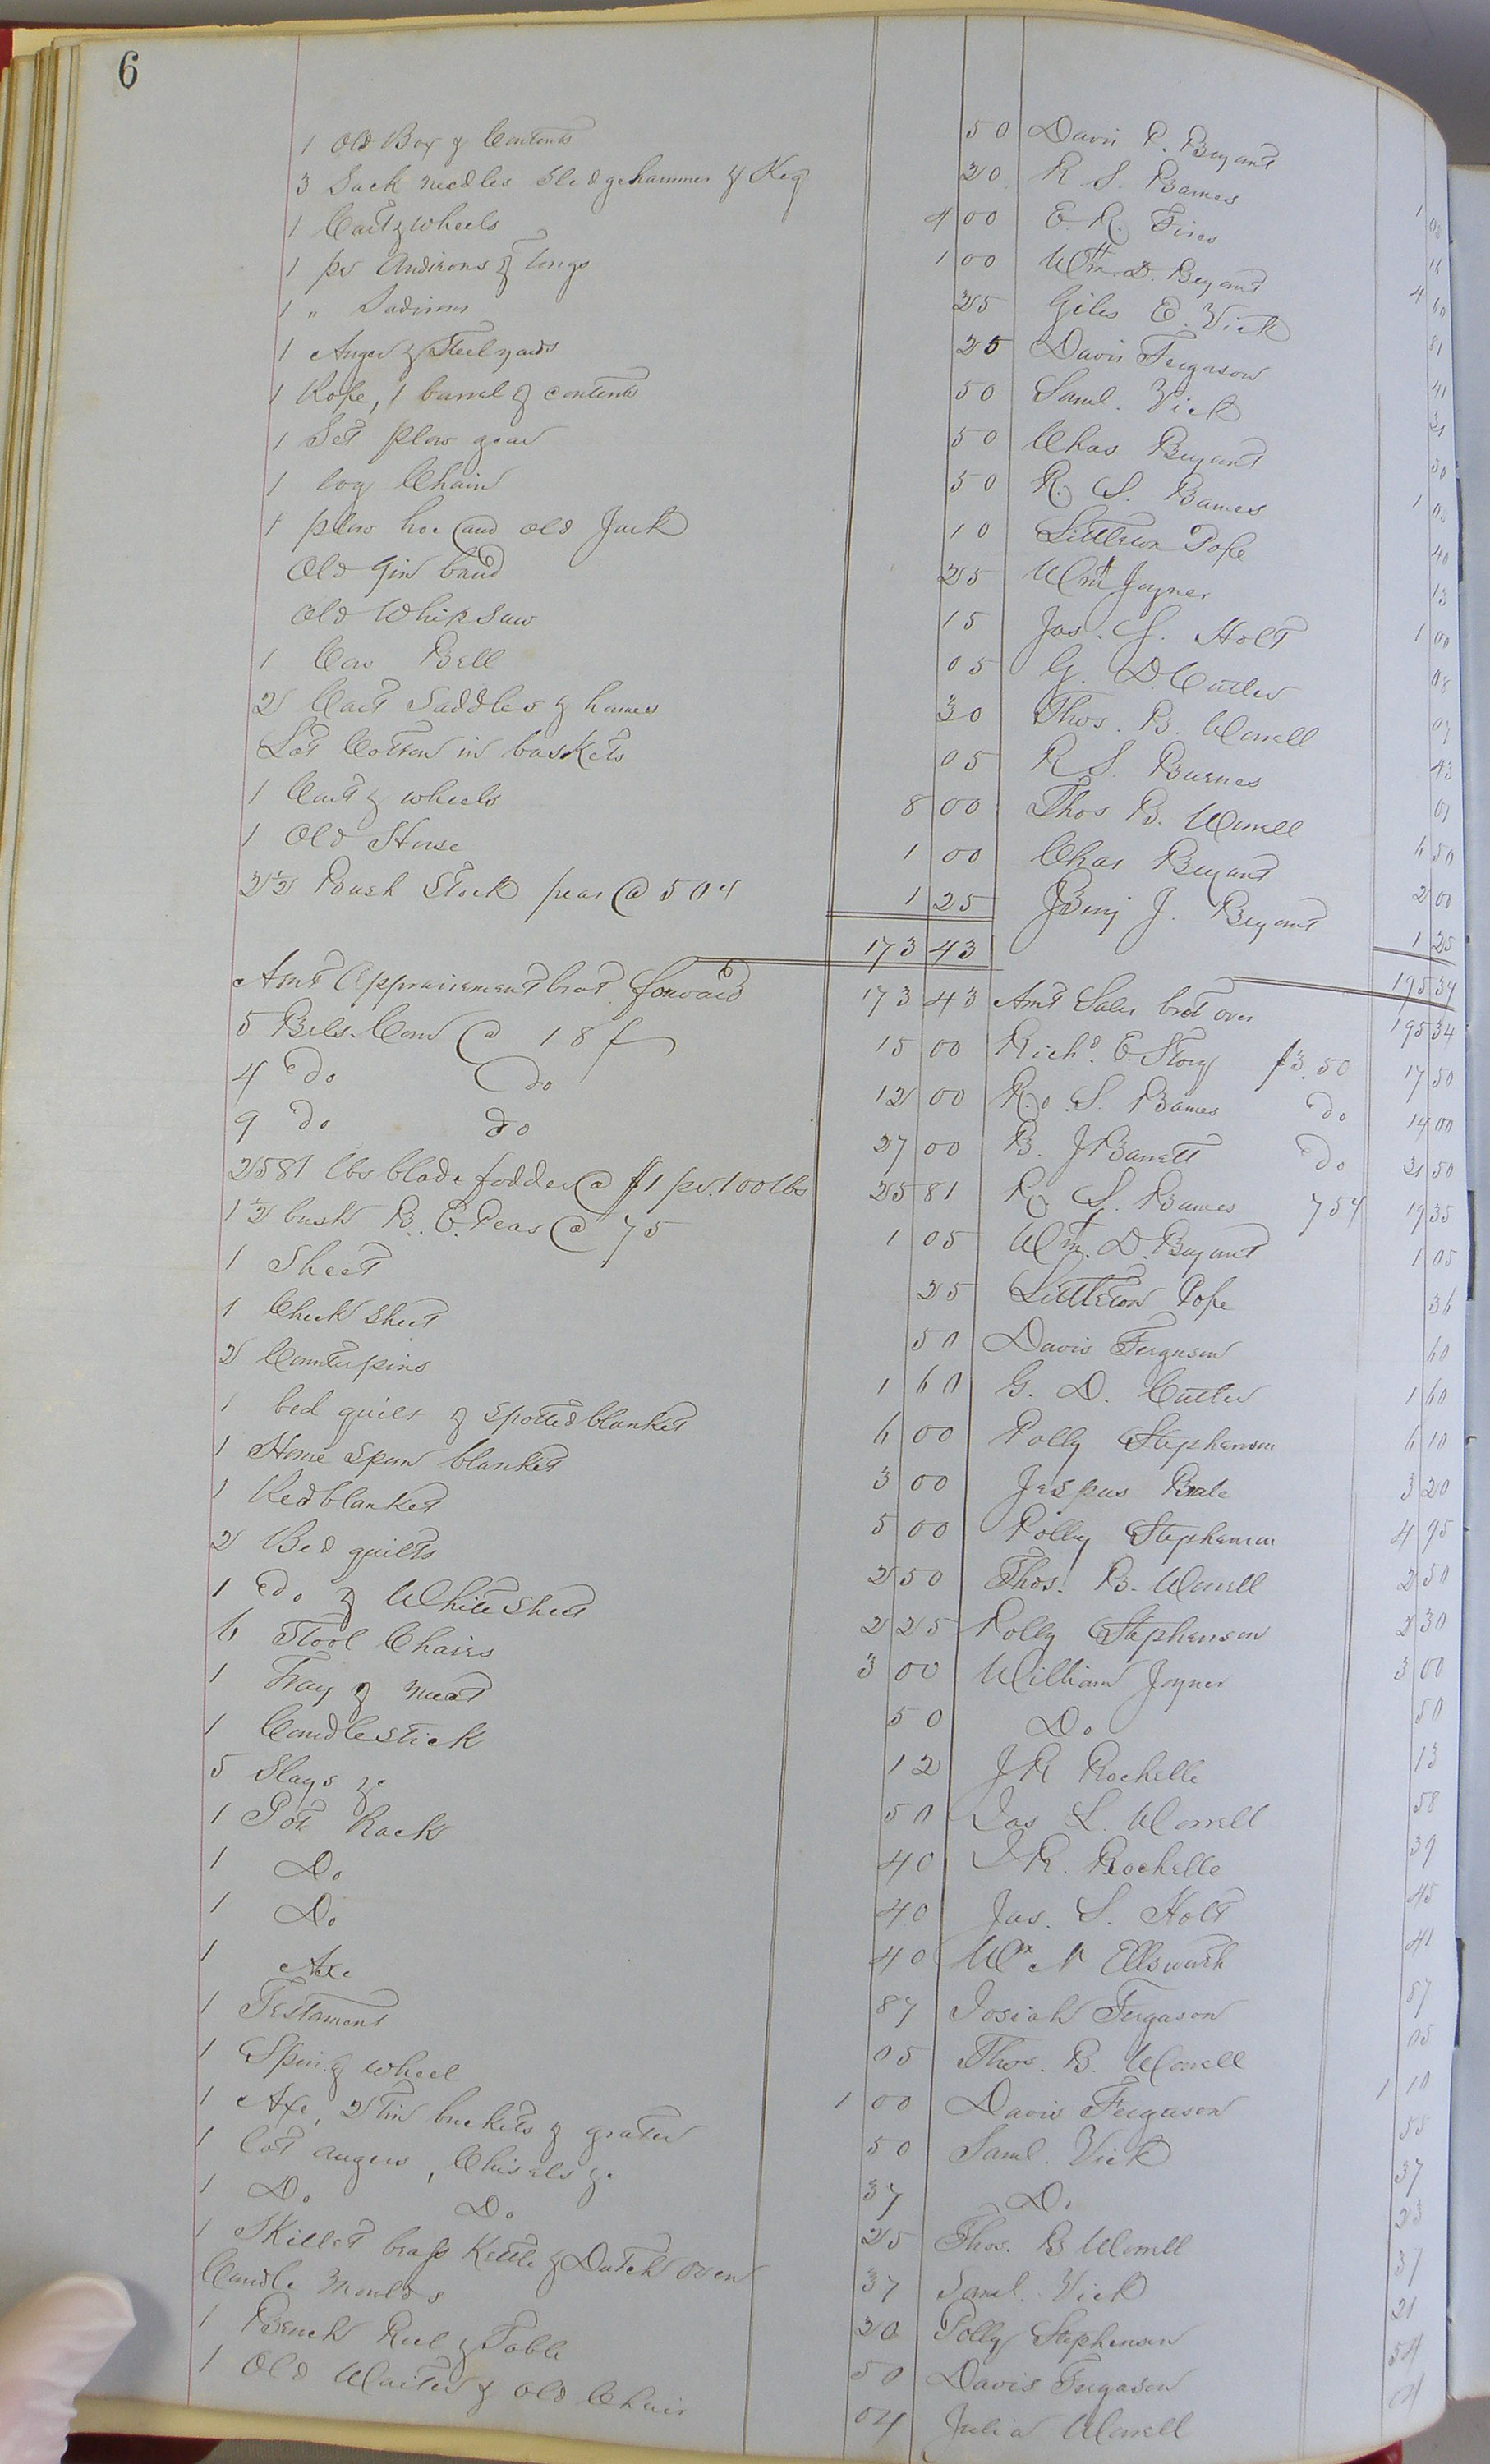 6
1 Old Box & Contents 50 Davis P. Bryant
3 Sack needles Sledgehammer & Keg 20 R S. Barnes 1 00
1 Cart & wheels 4 00 E. R. 16
1 pr Andirons & tongs 1 00 Wm. D. Bryant 4 60
1 " Sadirons 25 Giles E. Vick 81
1 Auger & Steelyards 25 Davis Fergason 41
1 Rope, 1 barrel & contents 50 Saml. Vick 31
1 Set plow gear 50 Chas Bryant 50
1 log Chain 50 R. S. Barnes 1 00
1 plow hoe and old Jack 10 Littleton Pope 40
Old Gin band 25 Wm Joyner 13
Old Whip Saw 15 Jas. S. Holt 1 00
1 Cow Bell 05 G. D. Cutler 08
2 Cart Saddles & hames 30 Thos. B. Worrell 07
Lot Cotton in baskets 05 R S. Barnes 43
1 Cart & wheels 8 00 Thos B. Worrell 01
1 Old Horse 1 00 Chas Bryant 6 50
2 1/2 Bush Stock peas @ 50 c 1 25 Benj J. Bryant 2 00
173 43 1 25
195 34
Amt Appraisement brot forward 173 43 Amt Sales brot over 195 34
5 Bbls. Corn @ 18/ 15 00 Richd. E. Story $3.50 17 50
4 Do Do 12 00 R. S. Barnes Do 14 00
9 Do do 27 00 B. J Barrett Do 31 50
2581 lbs blade fodder @ $1 pr. 100 lbs 25 81 R S. Barnes 75 c 19 35
1 1/2 bush B. E. Peas @ 75 1 05 Wm. D. Bryant 1 05
1 Sheet 25 Littleton Pope 36
1 Check Sheet 50 Davis Ferguson 60
2 Counterpins 1 60 G. D. Cutler 1 60
1 bed quilt & Spotted blanket 6 00 Polly Stephenson 6 10
1 Home Spun blanket 3 00 3 20
1 Red blanket 5 00 Polly Stephenson 4 95
2 Bed quilts 2 50 Thos. B. Worrell 2 50
1 Do. & White Sheet 2 25 Polly Stephenson 2 30
6 Stool Chairs 3 00 William Joyner 3 00
1 Tray & meat 50 Do 50
1 Candlestick 12 J R Rochelle 13
5 Slays &c 50 Jas L. Worrell 58
1 Pot Rack 40 J R. Rochelle 39
1 Do 40 Jas. S. Holt 45
1 Do 40 Wm N Ellsworth 41
1 Axe 87 Josiah Fergason 87
1 Testament 05 Thos. B. Worrell 05
1 Spin.g wheel 1 00 Davis Fergason 1 10
1 Axe, 2 tin buckets & grater 50 Saml. Vick 55
1 lot augers, Chisels &c 37 Do 37
1 Do. Do. 25 Thos. B Worrell 23
1 Skillet brass Kettle & Dutch oven 37 Saml. Vick 37
Candle Moulds 20 Polly Stephenson 21
1 Bench Reel & Table 50 Davis Fergason 54
1 Old Waiter & old Chair 04 Julia Worrell 04